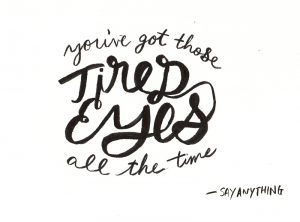 you've got those
TIRED
EYES
all the time
— SAY ANYTHING